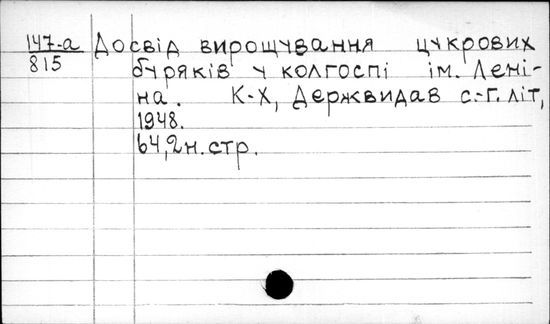 147-а Досвід вирощування цукрових
815 буряків у колгоспі ім. Лені-
на. К-Х, Держвидав с.-г. літ,
1948.
64,2н.стр.